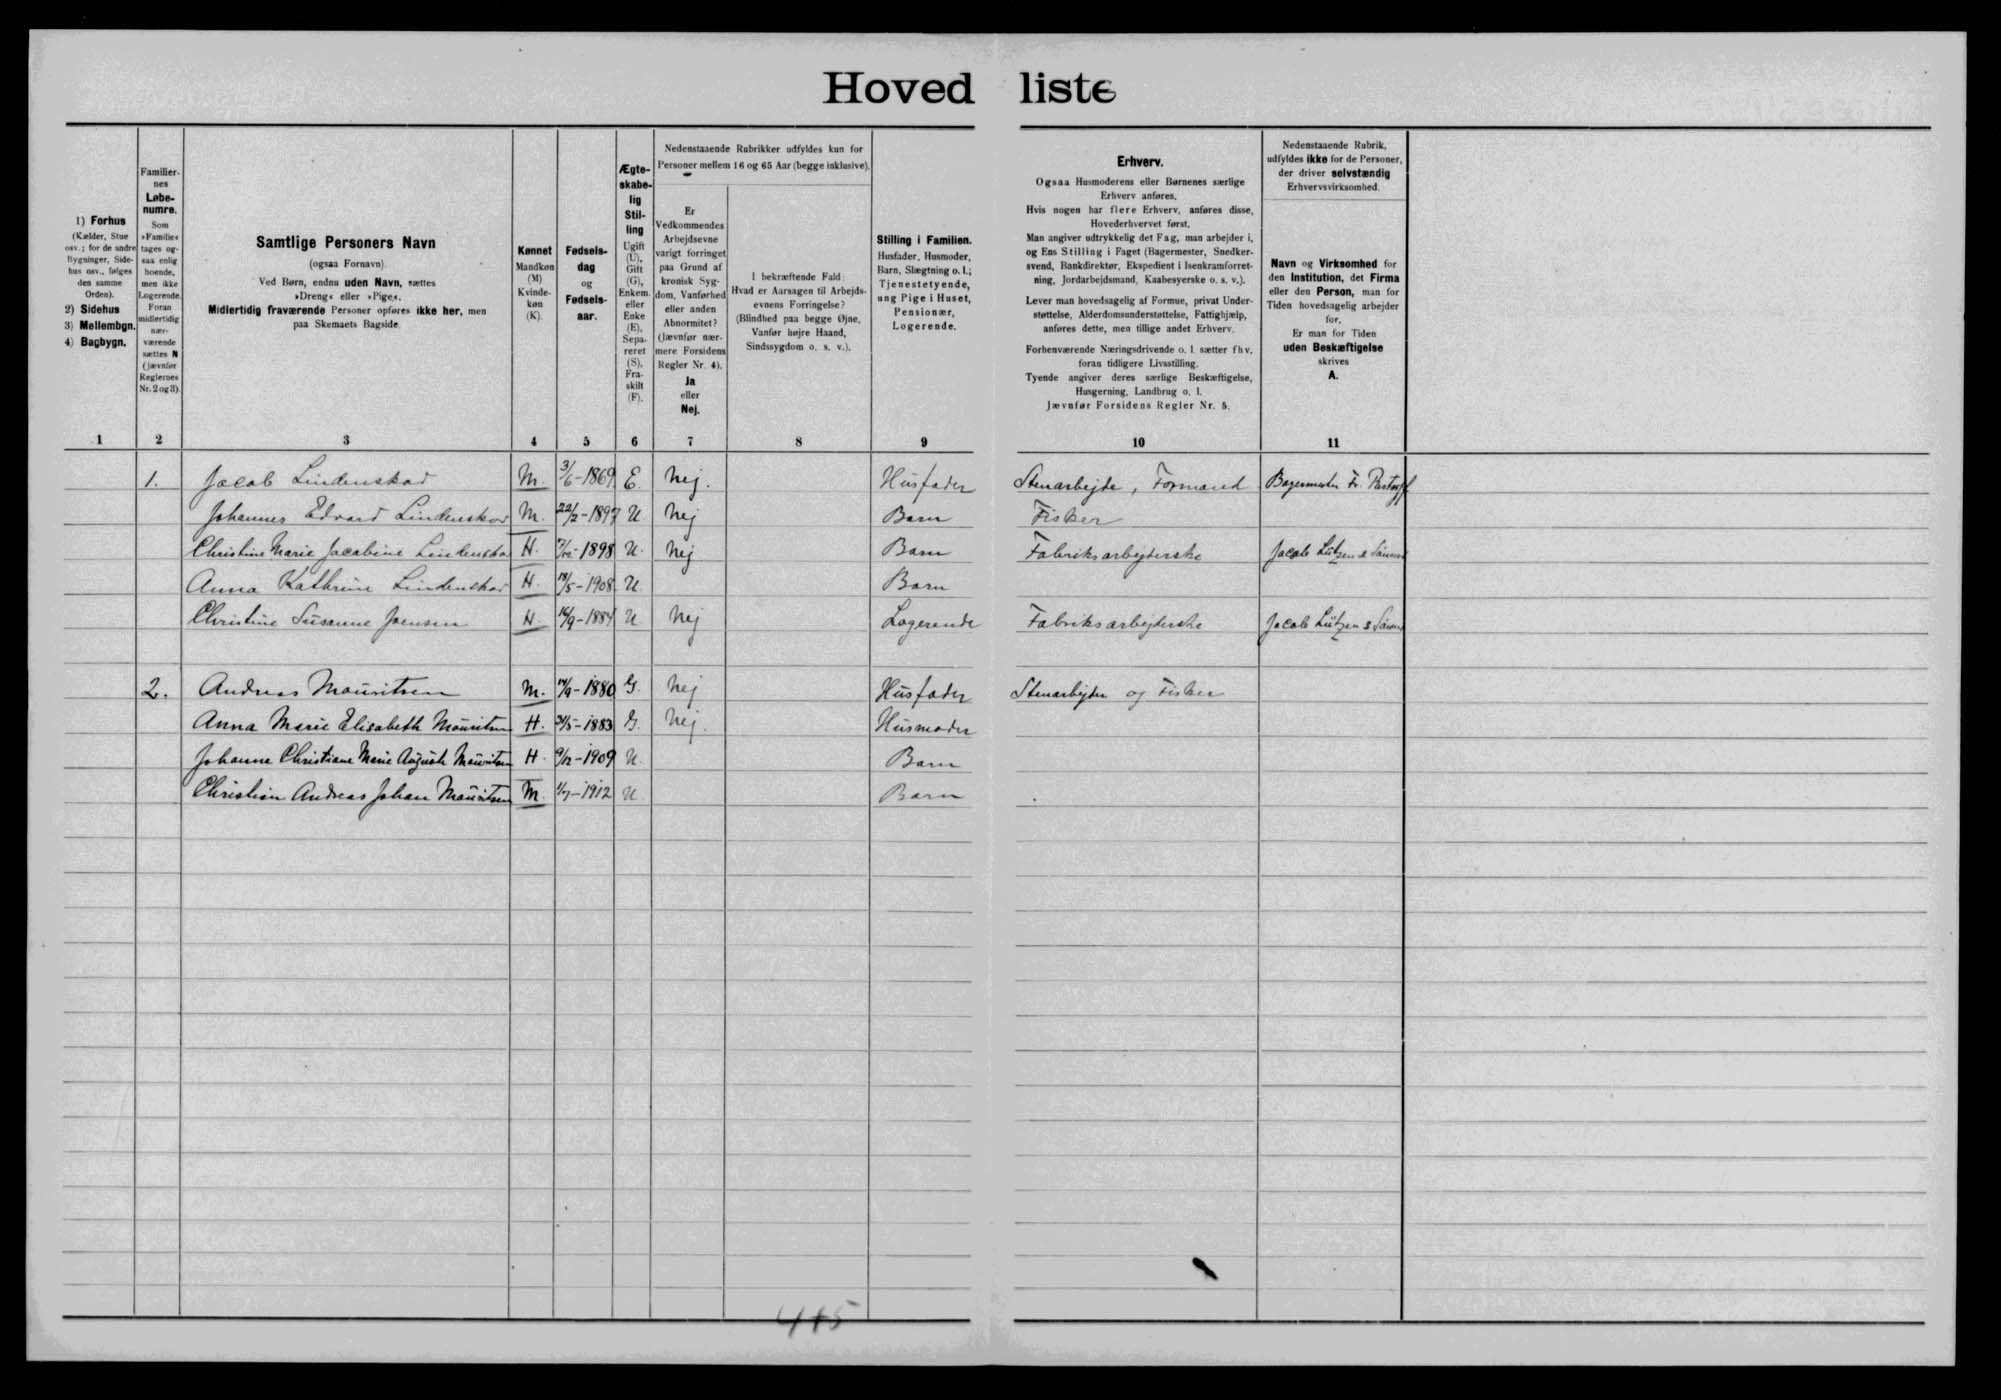 Hovedliste
1) Forhus
(Kælder, Stue
osv.; for de andre
Bygninger, Side-
hus osv., følges
den samme
Orden).
2) Sidehus
3) Mellembgn.
4) Bagbygn.
Familier-
nes
Løbe-
numre.
Som
»Familie«
tages og-
saa enlig
boende,
men ikke
Logerende.
Foran
midlertidig
nær-
værende
sættes N
(jævnfør
Reglernes
Nr. 2 og 3).
Samtlige Personers Navn
(ogsaa Fornavn).
Ved Børn, endnu uden Navn, sættes
»Dreng« eller »Pige«.
Midlertidig fraværende Personer opføres ikke her, men
paa Skemaets Bagside.
Kønnet
Mandkøn
(M)
Kvinde-
køn
(K).
Fødsels-
dag
og
Fødsels-
aar.
Ægte-
skabe-
lig
Stil-
ling
Ugift
(U),
Gift
(G),
Enkem.
eller
Enke
(E),
Sepa-
reret
(S),
Fra-
skilt
(F).
Nedenstaaende Rubrikker udfyldes kun for
Personer mellem 16 og 65 Aar (begge inklusive).
Er
Vedkommendes
Arbejdsevne
varigt forringet
paa Grund af
kronisk Syg-
dom, Vanførhed
eller anden
Abnormitet?
(Jævnfør nær-
mere Forsidens
Regler Nr. 4).
Ja
eller
Nej.
I bekræftende Fald:
Hvad er Aarsagen til Arbejds-
evnens Forringelse?
(Blindhed paa begge Øjne,
Vanfør højre Haand,
Sindssygdom o. s. v.).
Stilling i Familien.
Husfader, Husmoder,
Barn, Slægtning o. l.;
Tjenestetyende,
ung Pige i Huset,
Pensionær,
Logerende.
Erhverv.
Ogsaa Husmoderens eller Børnenes særlige
Erhverv anføres.
Hvis nogen har flere Erhverv, anføres disse,
Hovederhvervet først.
Man angiver udtrykkelig det Fag, man arbejder i,
og Ens Stilling i Faget (Bagermester, Snedker-
svend, Bankdirektør, Ekspedient i Isenkramforret-
ning, Jordarbejdsmand, Kaabesyerske o. s. v.).
Lever man hovedsagelig af Formue, privat Under-
støttelse, Alderdomsunderstøttelse, Fattighjælp,
anføres dette, men tillige andet Erhverv.
Forhenværende Næringsdrivende o. l. sætter fhv.
foran tidligere Livsstilling.
Tyende angiver deres særlige Beskæftigelse,
Husgerning, Landbrug o. l.
Jævnfør Forsidens Regler Nr. 5.
Nedenstaaende Rubrik,
udfyldes ikke for de Personer,
der driver selvstændig
Erhvervsvirksomhed.
Navn og Virksomhed for
den Institution, det Firma
eller den Person, man for
Tiden hovedsagelig arbejder
for.
Er man for Tiden
uden Beskæftigelse
skrives
A.
1 2 3 4 5 6 7 8 9 10 11
1. Jacob Lindenskov M. 3/6-1869 E. Nej. Husfader Stenarbejde, Formand Bagermester Fr.
Johannes Edvard Lindenskov M. 22/2-1897 U Nej Barn Fisker
Christine Marie Jacobine Lindensko H. 1898 U. Nej Barn Fabriksarbejderske Jacob Lützen & Sönner
Anna Kathrine Lindenskov H. 18/5-1908 U. Barn
Christine Susanne Joensen H. 16/9-1884 U Nej Logerende Fabriksarbejderske Jacob Lützen & Sönner
2. Andreas Mouritsen M. 14/9-1880 G. Nej Husfader Stenarbejder og Fisker
Anna Marie Elisabeth Mouritsen H. 31/5-1883 G. Nej. Husmoder
Johanne Christiane Marie Auguste Mouritsen H. 9/12-1909 U. Barn
Christian Andreas Johan Mouritsen M. 1/7-1912 U. Barn
415